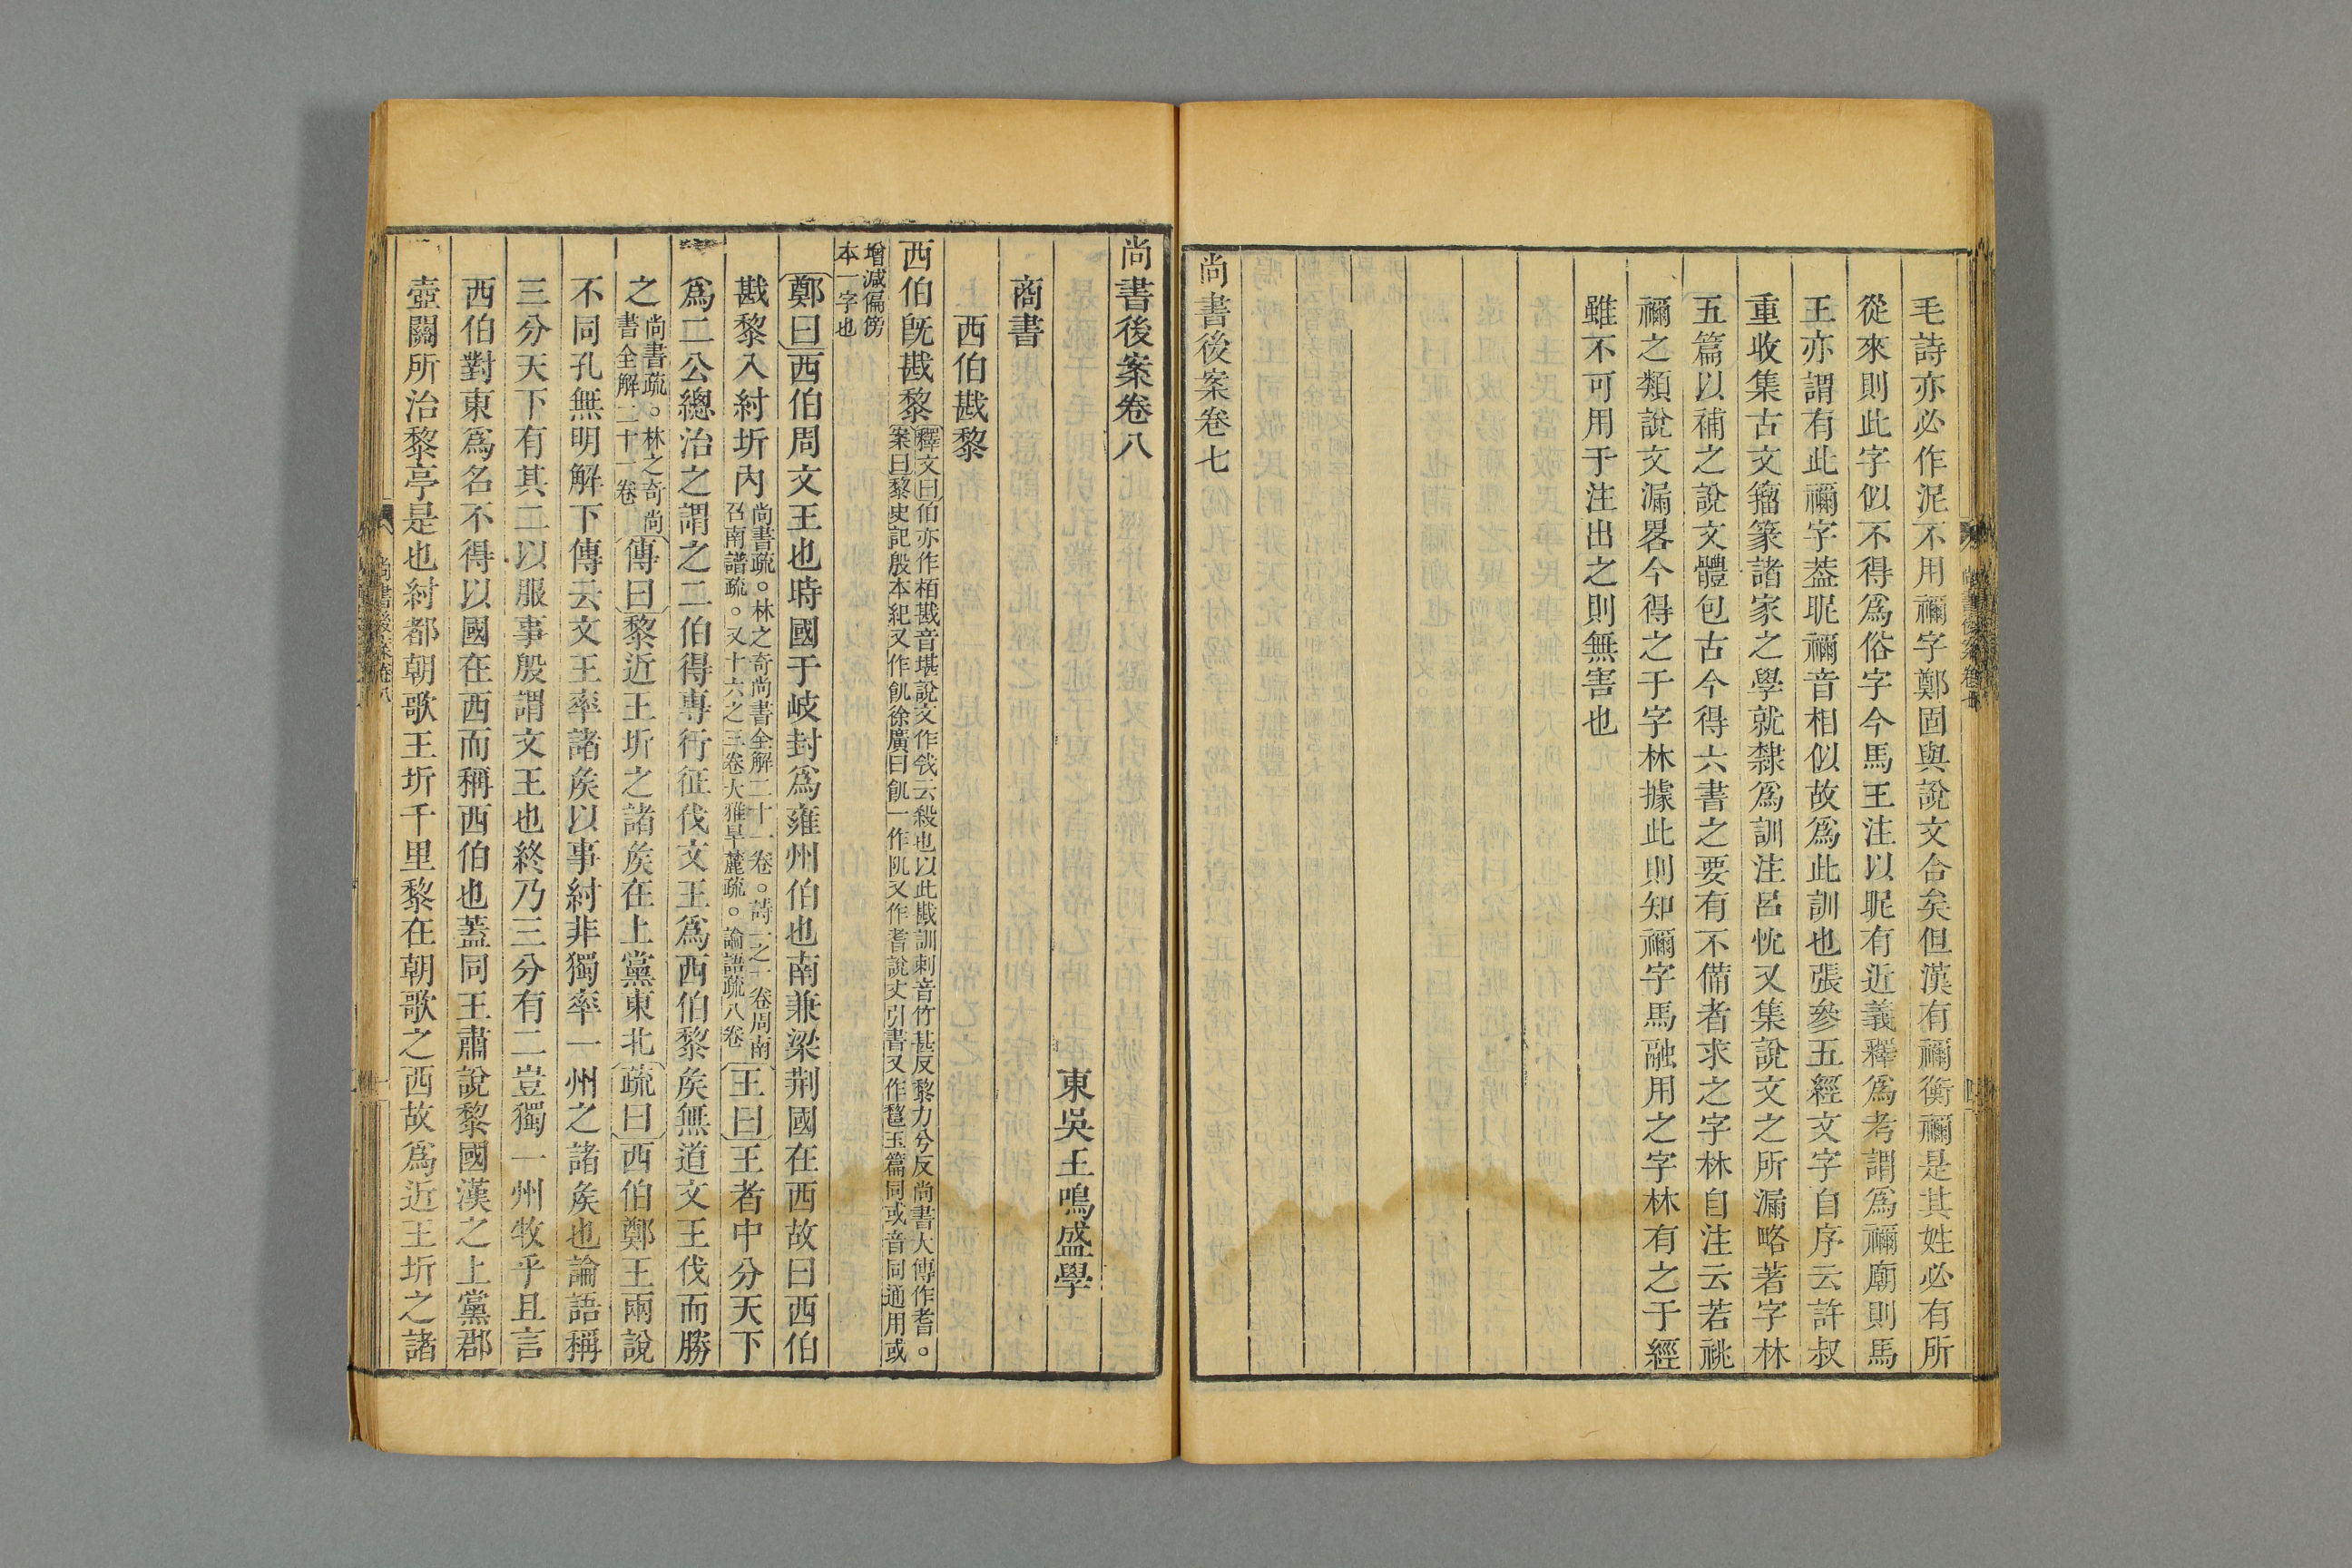 毛詩亦必作泥不用禰字鄭固與說文合矣但漢有禰衡禰是其姓必有所
從來則此字似不得爲俗字今馬王注以昵有近義釋爲考謂爲禰廟則馬
王亦謂有此禰字葢昵禰音相似故爲此訓也張參五經文字自序云許叔
重收集古文籀篆諸家之學就隸爲訓注呂忱又集說文之所漏略著字林
五篇以補之說文體包古今得六書之要有不備者求之字林自注云若祧
禰之類說文漏畧今得之于字林據此則知禰字馬融用之字林有之于經
雖不可用于注出之則無害也
尚書後案卷七
尚書後案卷八
東吳王鳴盛學
商書
西伯戡黎
西伯旣戡黎
釋文曰伯亦作栢戡音堪說文作㦰云殺也以此戡訓刺音竹甚反黎力兮反尚書大傳作耆。
案曰黎史記殷本紀又作飢徐廣曰飢一作阢又作耆說文引書又作𨛫玉篇同或音同通用或
增減偏傍
本一字也
鄭曰西伯周文王也時國于岐封爲雍州伯也南兼梁荆國在西故曰西伯
戡黎入紂圻內尚書疏。林之奇尚書全解二十一卷。詩一之一卷周南
召南譜疏。又十六之三卷大雅旱麓疏。論語疏八卷王曰王者中分天下
爲二公總治之謂之二伯得專行征伐文王爲西伯黎矦無道文王伐而勝
之尚書疏。林之奇尚
書全解二十一卷傳曰黎近王圻之諸矦在上黨東北疏曰西伯鄭王兩說
不同孔無明解下傳云文王率諸矦以事紂非獨率一州之諸矦也論語稱
三分天下有其二以服事殷謂文王也終乃三分有二豈獨一州牧乎且言
西伯對東爲名不得以國在西而稱西伯也蓋同王肅說黎國漢之上黨郡
壺關所治黎亭是也紂都朝歌王圻千里黎在朝歌之西故爲近王圻之諸